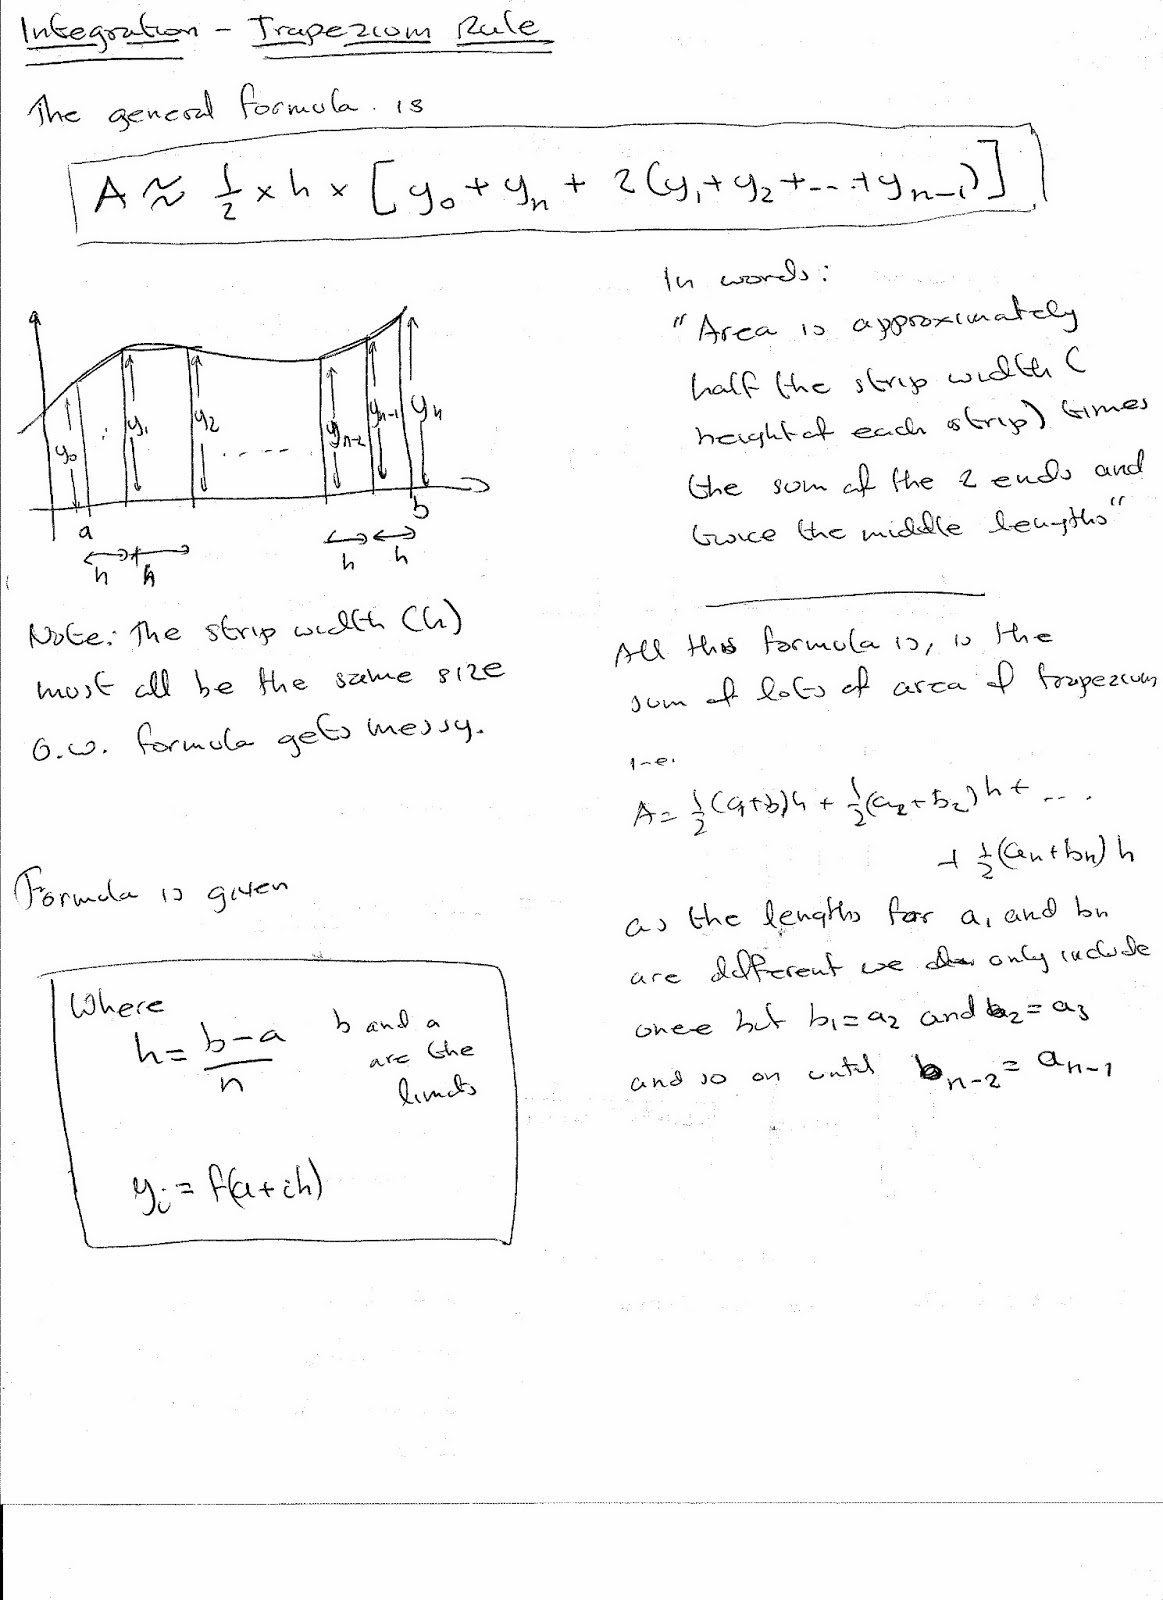 Integration - Trapezium Rule
The general formula is
A ≈ 1/2 × h × [y₀ + yₙ + 2(y₁ + y₂ + ... + yₙ₋₁)]
In words:
"Area is approximately
half the strip width (
height of each strip) times
the sum of the 2 ends and
twice the middle lengths"
y₀ y₁ y₂ ..... yₙ₋₂ yₙ₋₁ yₙ
a b
h h h h
Note: The strip width (h)
must all be the same size
O.w. formula gets messy.
All this formula is, is the
sum of lots of area of trapezium
i.e.
A = 1/2(a₁+b₁)h + 1/2(a₂+b₂)h + ....
+ 1/2(aₙ+bₙ)h
as the lengths for a₁ and bₙ
are different we only include
once but b₁=a₂ and b₂=a₃
and so on until bₙ₋₂=aₙ₋₁
Formula is given
Where
h = (b-a)/n
b and a
are the
limits
yᵢ = f(a+ih)